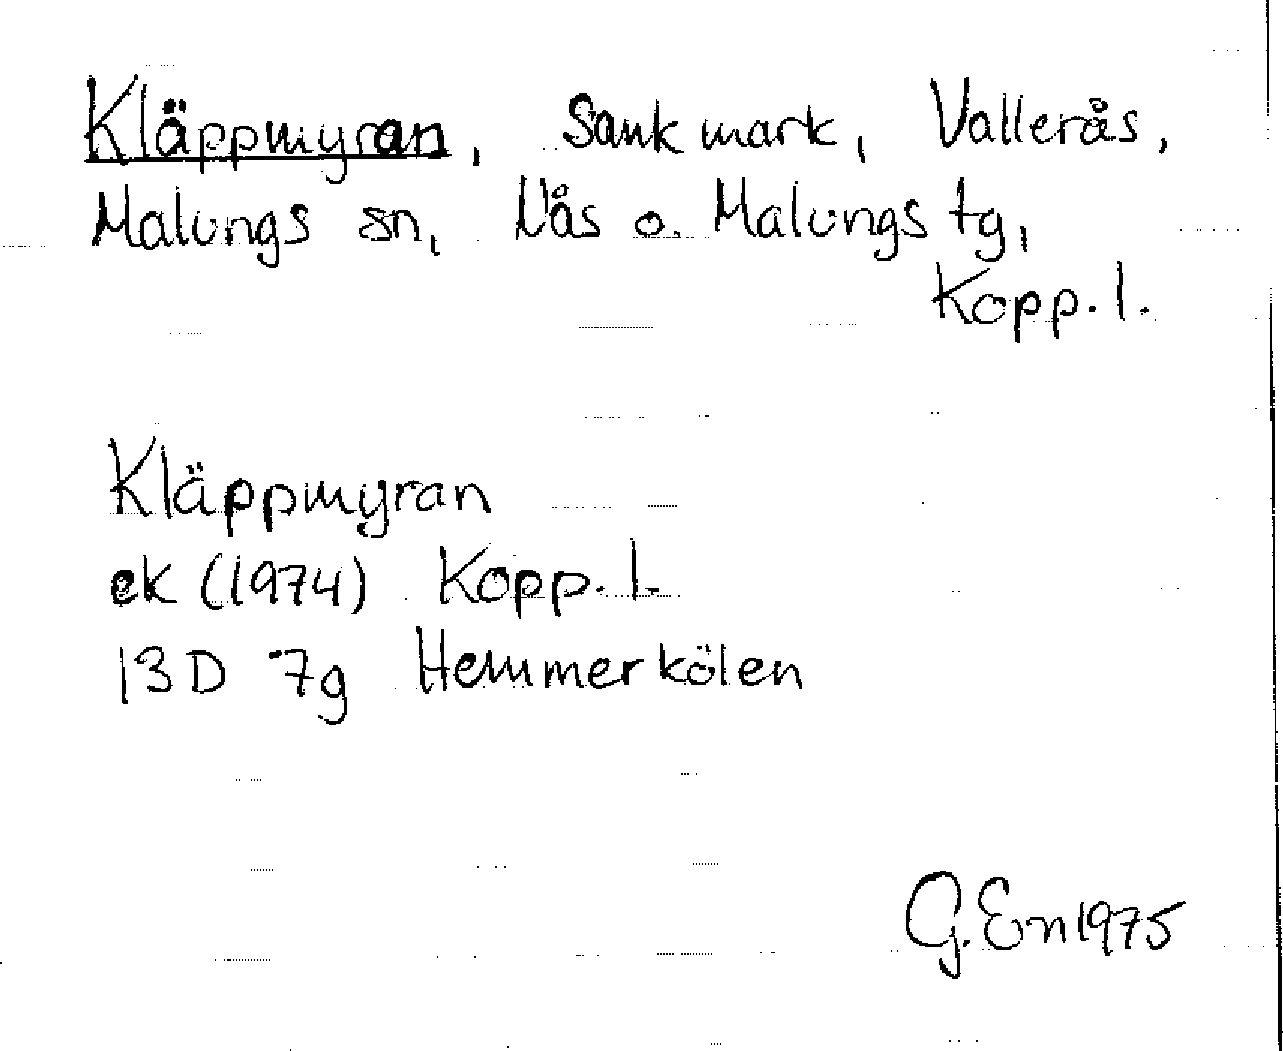 Kläppmyran, Sankmark, Vallerås,
Malungs sn, Nås o. Malungs tg,
Kopp. l.
Kläppmyran
ek (1974) Kopp. l.
13D 7g Hemmerkölen
G. En 1975